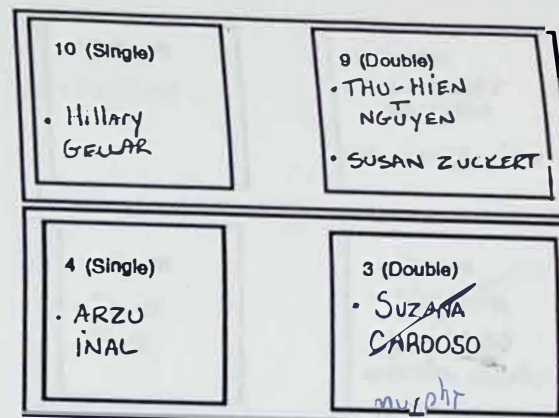 10 (Single)
• Hillary
GELLAR
9 (Double)
• THU-HIEN
T
NGUYEN
• SUSAN ZUCKERT
4 (Single)
• ARZU
INAL
3 (Double)
• SUZANA
CARDOSO